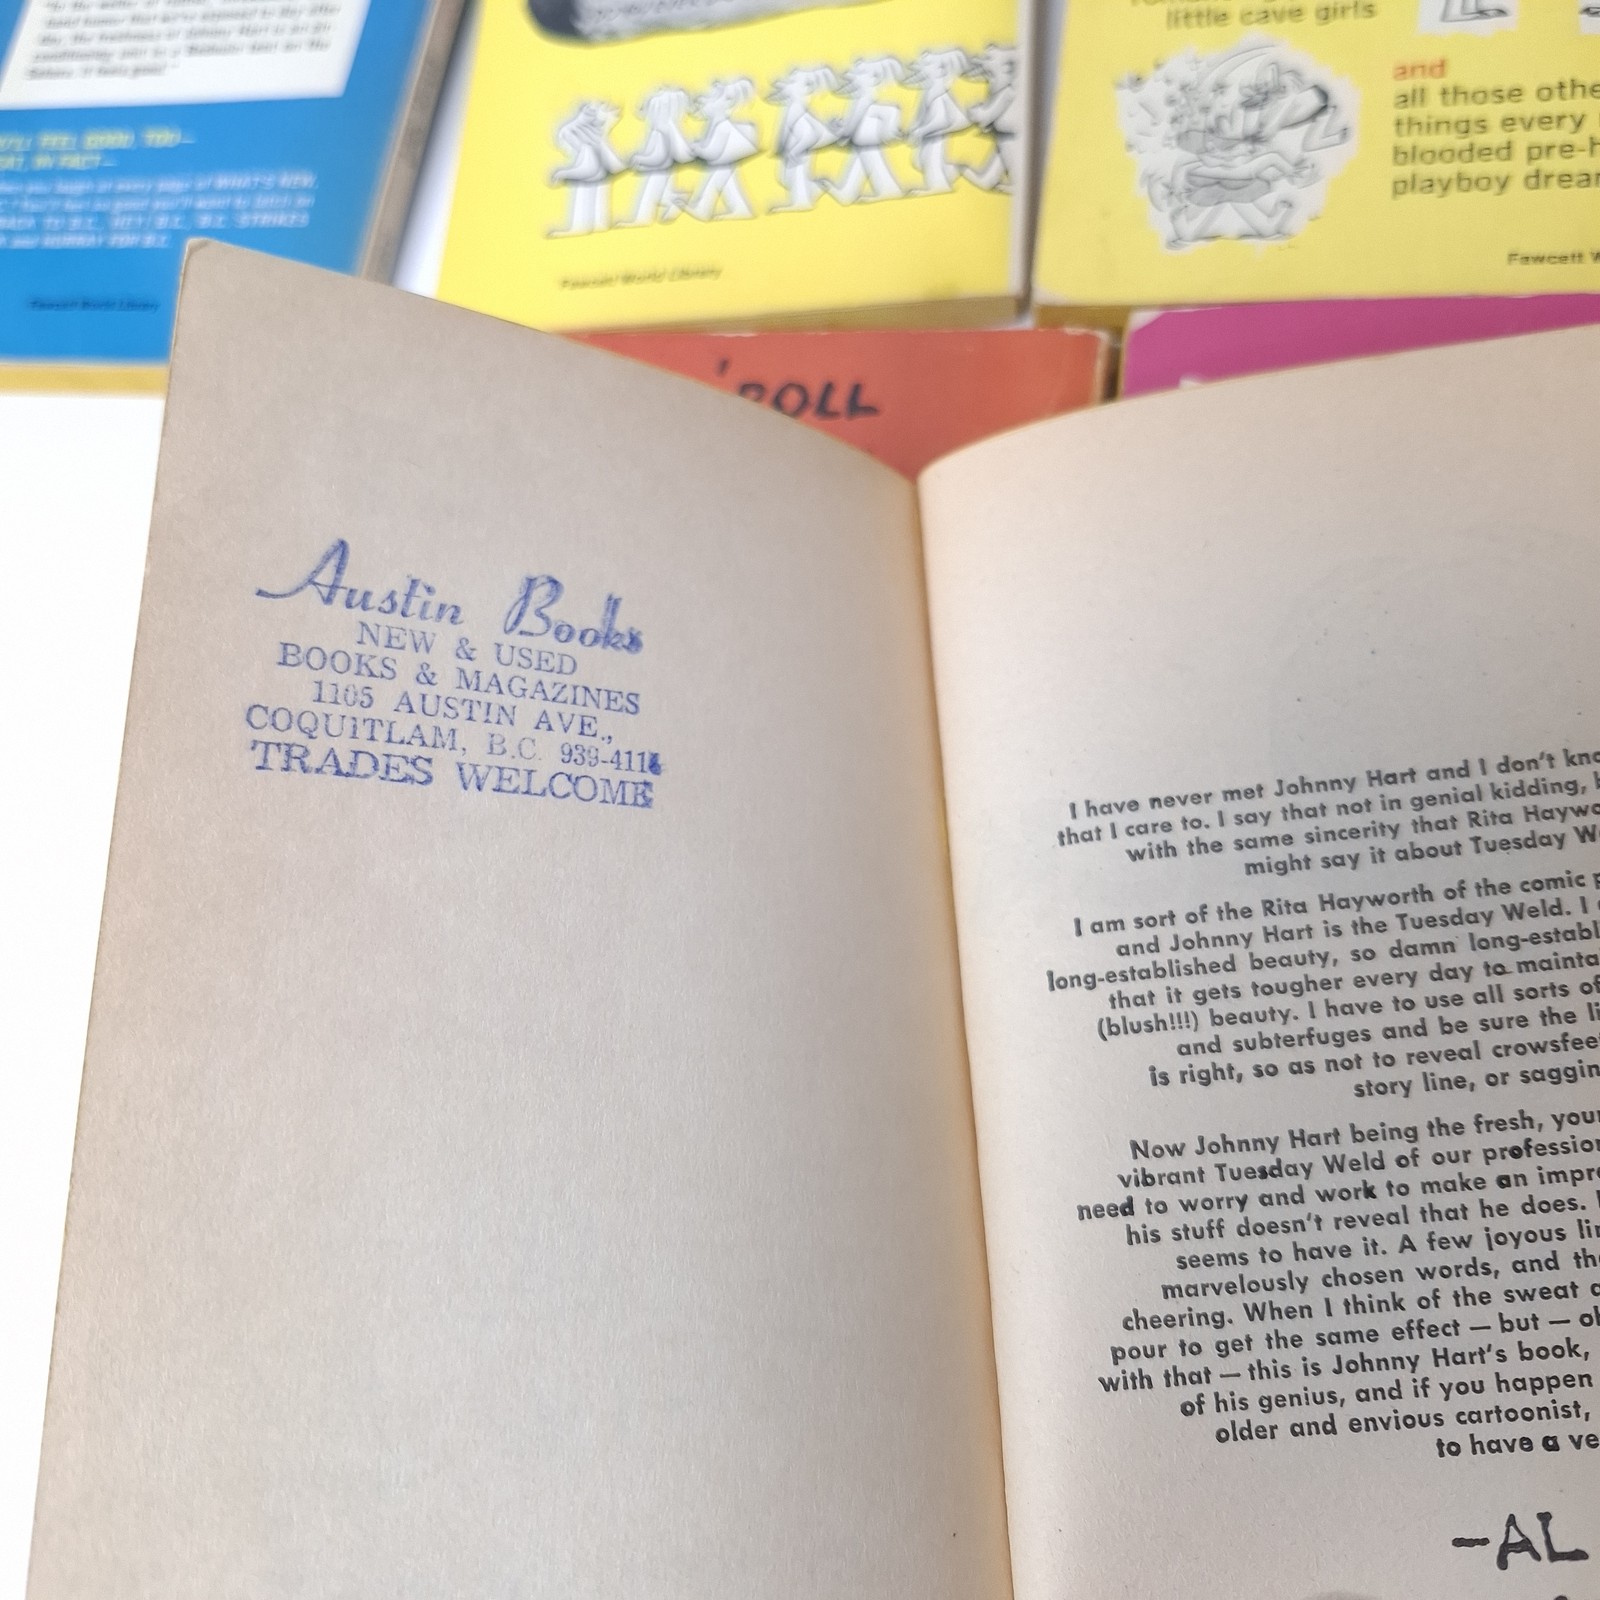 little cave girls
and
all those othe
things every
blooded pre-h
playboy drear
Fawcett W
Fawcett World Library
Fawcett World Library
'ROLL
Austin Books
NEW & USED
BOOKS & MAGAZINES
1105 AUSTIN AVE.,
COQUITLAM, B.C. 939-411
TRADES WELCOME
I have never met Johnny Hart and I don't kno
that I care to. I say that not in genial kidding, b
with the same sincerity that Rita Haywo
might say it about Tuesday W
I am sort of the Rita Hayworth of the comic p
and Johnny Hart is the Tuesday Weld. I
long-established beauty, so damn long-establ
that it gets tougher every day to mainta
(blush!!!) beauty. I have to use all sorts of
and subterfuges and be sure the li
is right, so as not to reveal crowsfeet
story line, or saggin
Now Johnny Hart being the fresh, your
vibrant Tuesday Weld of our profession
need to worry and work to make an impre
his stuff doesn't reveal that he does.
seems to have it. A few joyous lin
marvelously chosen words, and the
cheering. When I think of the sweat
pour to get the same effect — but — oh
with that — this is Johnny Hart's book,
of his genius, and if you happen
older and envious cartoonist,
to have a ve
-AL